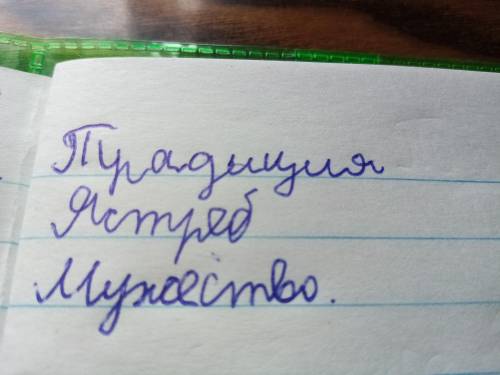 Традиция
Ястреб
Мужество.